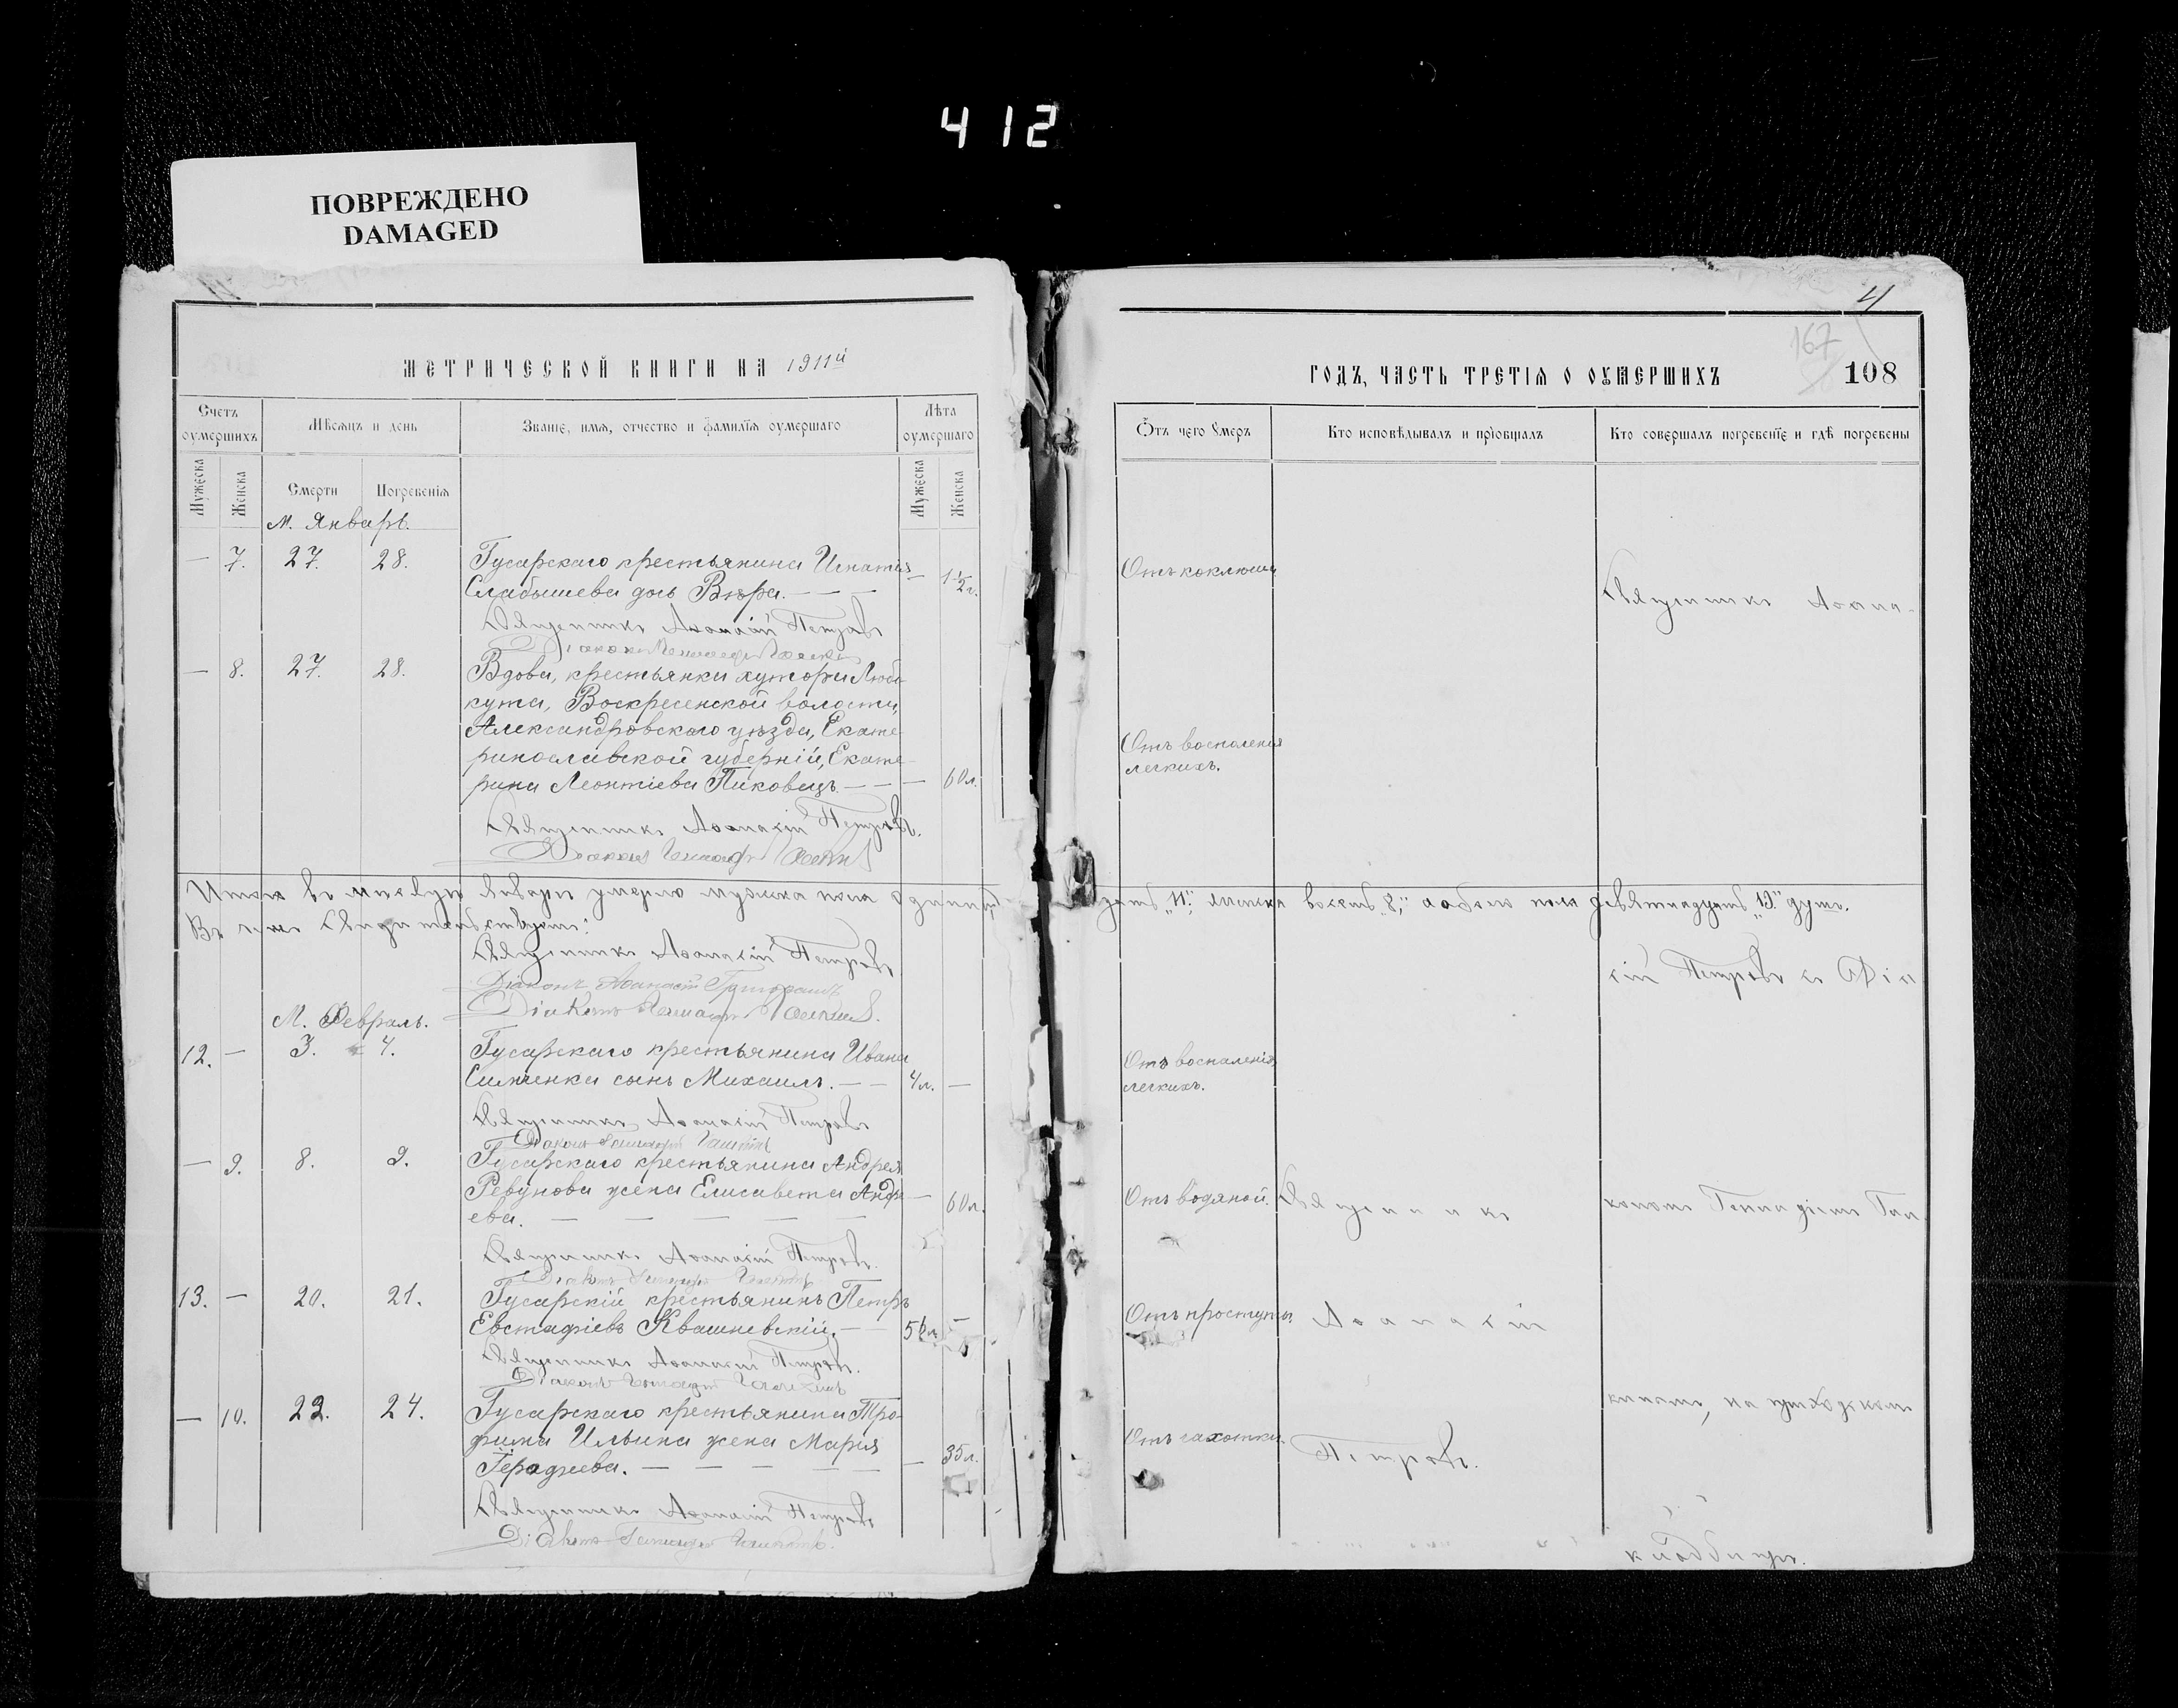 412
ПОВРЕЖДЕНО
DAMAGED
МЕТРИЧЕСКОЙ КНИГИ НА 1911й
Счетъ оумершихъ
Мѣсяцъ и день
Званіе, имя, отчество и фамилїя оумершаго
Лѣта оумершаго
Мужеска
Женска
Смерти
Погребенія
Мужеска
Женска
м. Январь.
— 7. 27. 28. Гусарскаго крестьянина Игнатія — 1½ г.
Слабышева дочь Вѣра. — — —
Священникъ Аѳанасій Петровъ
Діаконъ Геннадій
— 8. 27. 28. Вдова, крестьянка хутора Любо-
кута, Воскресенской волости,
Александровскаго уѣзда, Екате-
ринославской губерніи, Екате-
рина Леонтіева Пиковецъ — — — 60 л.
Священникъ Аѳанасій Петровъ.
Діаконъ Геннадій
Итого въ мѣсяцѣ Январѣ умерло мужска пола одинад-
Въ чемъ свидѣтельствуютъ:
Священникъ Аѳанасій Петровъ
Діаконъ Аѳанасій
Діаконъ Геннадій
М. Февраль.
12. — 3. 4. Гусарскаго крестьянина Ивана
сынъ Михаилъ. — — 4 л. —
Священникъ Аѳанасій Петровъ
Діаконъ Геннадій
— 9. 8. 9. Гусарскаго крестьянина Андрея
Ревунова жена Елисавета Андре- — 60 л.
ева. — — — — —
Священникъ Аѳанасій Петровъ.
Діаконъ Геннадій
13. — 20. 21. Гусарскій крестьянинъ Петръ
Евстафіевъ Квашневскій. — — 56 л. —
Священникъ Аѳанасій Петровъ.
Діаконъ Геннадій
— 10. 22. 24. Гусарскаго крестьянина Тро-
фима Ильина жена Марія — 35 л.
— — — — —
Священникъ Аѳанасій Петровъ
Діаконъ Геннадій
4
167
ГОДЪ, ЧАСТЬ ТРЕТІЯ О ОУМЕРШИХЪ
108
Отъ чего умеръ
Кто исповѣдывалъ и прїобщалъ
Кто совершалъ погребенїе и гдѣ погребены
Отъ коклюша
Священникъ Аѳана-
Отъ воспаленія
легкихъ.
цать „11“, женска восемь „8“, а обоего пола девятнадцать „19“ душъ.
сій Петровъ съ Діа
Отъ воспаленія
легкихъ.
Отъ водяной. Священникъ
кономъ Геннадіемъ
Отъ простуды. Аѳанасій
на приходскомъ
Отъ чахотки. Петровъ.
кладбищѣ.